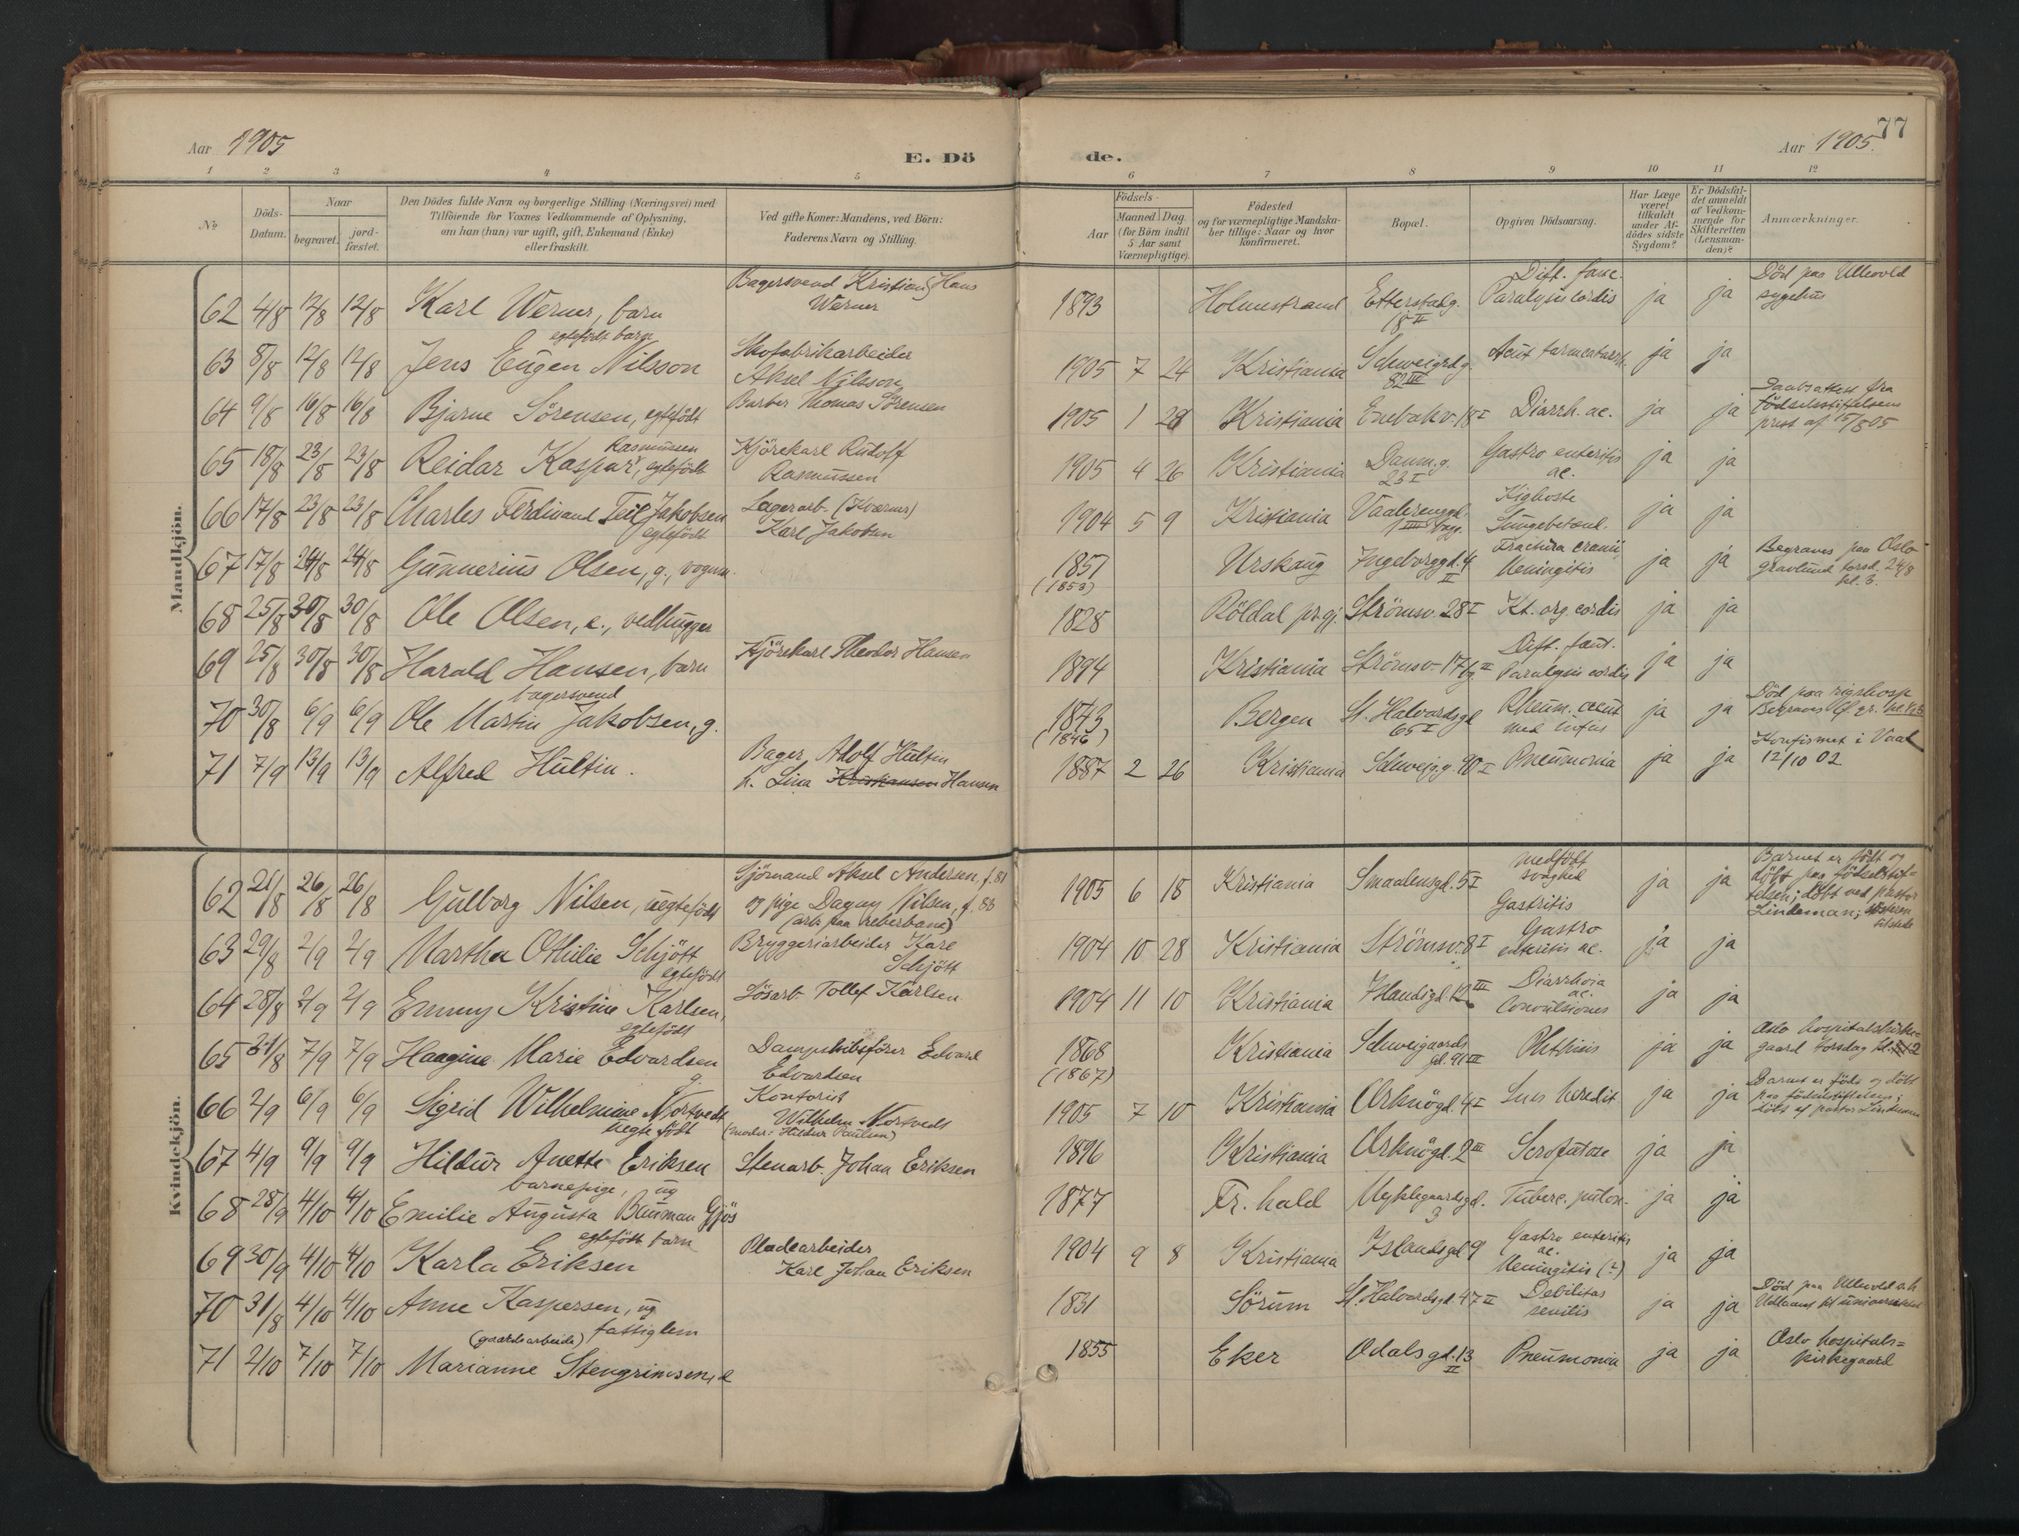 77
Aar 1905
E. Dö
de.
Aar 1905.
1 2 3 4 5 6 7 8 9 10 11 12
№
Döds-Datum.
Naar
begravet.
jord-fæstet.
Den Dödes fulde Navn og borgerlige Stilling (Næringsvei) med
Tilföiende for Voxnes Vedkommende af Oplysning,
om han (hun) var ugift, gift, Enkemand (Enke)
eller fraskilt.
Ved gifte Koner: Mandens, ved Börn:
Faderens Navn og Stilling.
Födsels-
Aar
Maaned Dag.
(for Börn indtil
5 Aar samt
Værnepligtige).
Födested
og for værnepligtige Mandska-
ber tillige: Naar og hvor
konfirmeret.
Bopæl.
Opgiven Dödsaarsag.
Har Læge
været
tilkaldt
under Af-
dödes sidste
Sygdom?
Er Dödsfal-
det anmeldt
af Vedkom-
mende for
Skifteretten
(Lensman-
den)?
Anmærkninger.
Mandkjön.
62 4/8 12/8 12/8 Karl Werner, barn Bagersvend Kristian Hans Werner 1893 Holmestrand Etterstadg. 18 II Paralysis cordis ja ja Död paa Ullevold sygehus
63 8/8 12/8 12/8 egtefödt barn Jens Eugen Nilsson Skofabrikarbeider Aksel Nilsson 1905 7 24 Kristiania Schweigrdg. 82 III Acut tarmcatarrh. ja ja
64 9/8 16/8 16/8 Bjarne Sörensen, egtefödt Barber Thomas Sörensen 1905 1 28 Kristiania Enebakv. 18 I Diarrh. ac. ja ja Daabsattest fra Födselsstiftelsens prest af 15/8 05
65 18/8 23/8 23/8 Reidar Kaspar Rasmussen, egtefödt Kjörekarl Rudolf Rasmussen 1905 4 26 Kristiania Danm.g. 23 I Gastro enteritis ac. ja ja
66 17/8 23/8 23/8 Charles Ferdinand Jakobsen egtefödt Lagerarb. (Kværner) Karl Jakobsen 1904 5 9 Kristiania Vaalerenggd. 1 III Kighoste Lungebetænd. ja ja
67 17/8 24/8 24/8 Gunnerius Olsen, g., vognm. 1851 (1853) Urskaug Ingeborggd. 4 II Fractura cranii Meningitis ja ja Begraves paa Oslo gravlund torsd. 24/8 kl. 3.
68 25/8 30/8 30/8 Ole Olsen, e., vedhugger 1828 Röldal pr.gj. Strömsv. 28 I Kt. org cordis ja ja
69 25/8 30/8 30/8 Harald Hansen, barn Kjörekarl Theodor Hansen 1894 Kristiania Strömsv. 17 II Paralysis cordis ja ja
70 30/8 6/9 6/9 bagersvend Ole Martin Jakobsen, g. 1843 (1846) Bergen St. Halvardsgd 65 I Rheum. acut ja ja Död paa rigshosp Begraves
71 7/9 13/9 13/9 Alfred Hultin. Bager Adolf Hultin h. Lina Kristiansen Hansen 1887 2 26 Kristiania Schweigg. 90 I Pneumonia ja ja Konfirmert i Vaal 12/10 02
Kvindekjön.
62 21/8 26/8 26/8 Gulborg Nilsen, uegtefödt Sjömand Aksel Andersen, f. 81 og pige Dagny Nilsen, f. 83 (arb. paa reberbane) 1905 6 18 Kristiania Smaalensgd. 5 I medfödt svaghed Gastritis ja ja Barnet er födt og döbt paa födselsstiftelsen; döbt ved pastor Lindeman;
63 29/8 2/9 2/9 Martha Othilie Schjött egtefödt Bryggeriarbeider Karl Schjött 1904 10 28 Kristiania Strömsv. 8 I Gastro enteritis ac. ja ja
64 28/8 2/9 2/9 Emmy Kristine Karlsen, egtefödt Lösarb. Tollef Karlsen 1904 11 10 Kristiania Islandsgd. 12 III Diarrhoia ac. Convulsiones ja ja
65 31/8 7/9 7/9 Haagine Marie Edvardsen g. Dampskibsförer Edvard Edvardsen 1868 (1867) Kristiania Schweigaards gd. 91 III Phthisis ja ja Oslo hospitalskirkegaard torsdag kl. 2
66 2/9 6/9 6/9 Sigrid Wilhelmine Nortvedt uegte födt Kontorist Wilhelm Nortvedt (moder: Hildur Paulsen) 1905 7 10 Kristiania Orknögd. 4 I Lues heredit ja ja Barnet er föde og döbt paa födselsstiftelsen; döbt af pastor Lindeman
67 4/9 9/9 9/9 Hildur Anette Eriksen Stenarb. Johan Eriksen 1896 Kristiania Orknögd. 2 III Scrofulose ja ja
68 28/9 4/10 4/10 barnepige, ug Emilie Augusta Buuman Gjös 1877 Fr. hald Nyklegaardsgd. 3 Tuberc. pulm. ja ja
69 30/9 4/10 4/10 egtefödt barn Karla Eriksen Pladearbeider Karl Johan Eriksen 1904 9 8 Kristiania Islandsgd 9 Gastro enteritis ac. Meningitis (?) ja ja
70 31/8 4/10 4/10 Anne Kaspersen, ug fattiglem 1831 Sörum St. Halvardsgd. 47 II Debilitas senilis ja ja Död paa Ullevold Udlaant til universitetet
71 2/10 7/10 7/10 (gaardsarbeide) Marianne Stengrimsen, e 1855 Eker Odalsgd. 13 II Pneumonia ja ja Oslo hospitals=kirkegaard